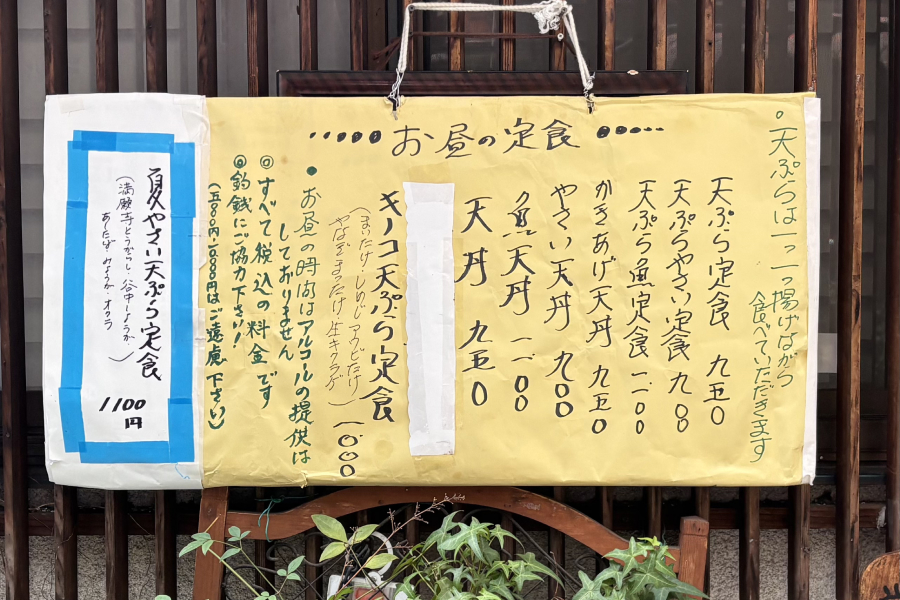 ・・・・・お昼の定食・・・・・
。天ぷらは一つ一つ揚げながら
食べていただきます
天ぷら定食 九五〇
天ぷらやさい定食 九〇〇
天ぷら魚定食 一一〇〇
かきあげ天丼 九五〇
やさい天丼 九〇〇
魚天丼 一一〇〇
天丼 九五〇
キノコ天ぷら定食
(まいたけ・しめじ アワビたけ
やなぎまったけ 生キクラゲ) 一〇〇〇
●お昼の時間はアルコールの提供は
しておりません
◎すべて税込の料金です
◎釣銭にご協力下さい!
(五,〇〇〇円 一〇,〇〇〇円はご遠慮下さい)
夏やさい天ぷら定食
(満願寺とうがらし・谷中しょうが
あしたば・みょうが・オクラ)
1100
円